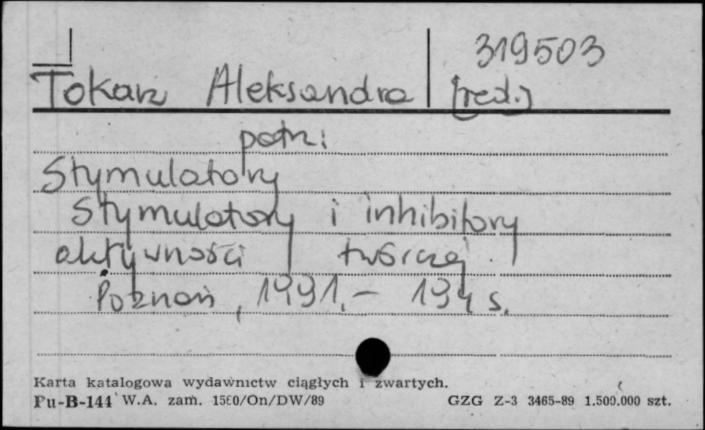 319503
Tokarz Aleksandra [red.]
patrz:
Stymulatory
Stymulatory i inhibitory
aktywności twórczej.
Poznań, 1991.- 194 s.
Karta katalogowa wydawnictw ciągłych i zwartych.
Pu-B-144 W.A. zam. 1560/On/DW/89 GZG Z-3 3465-89 1.500.000 szt.